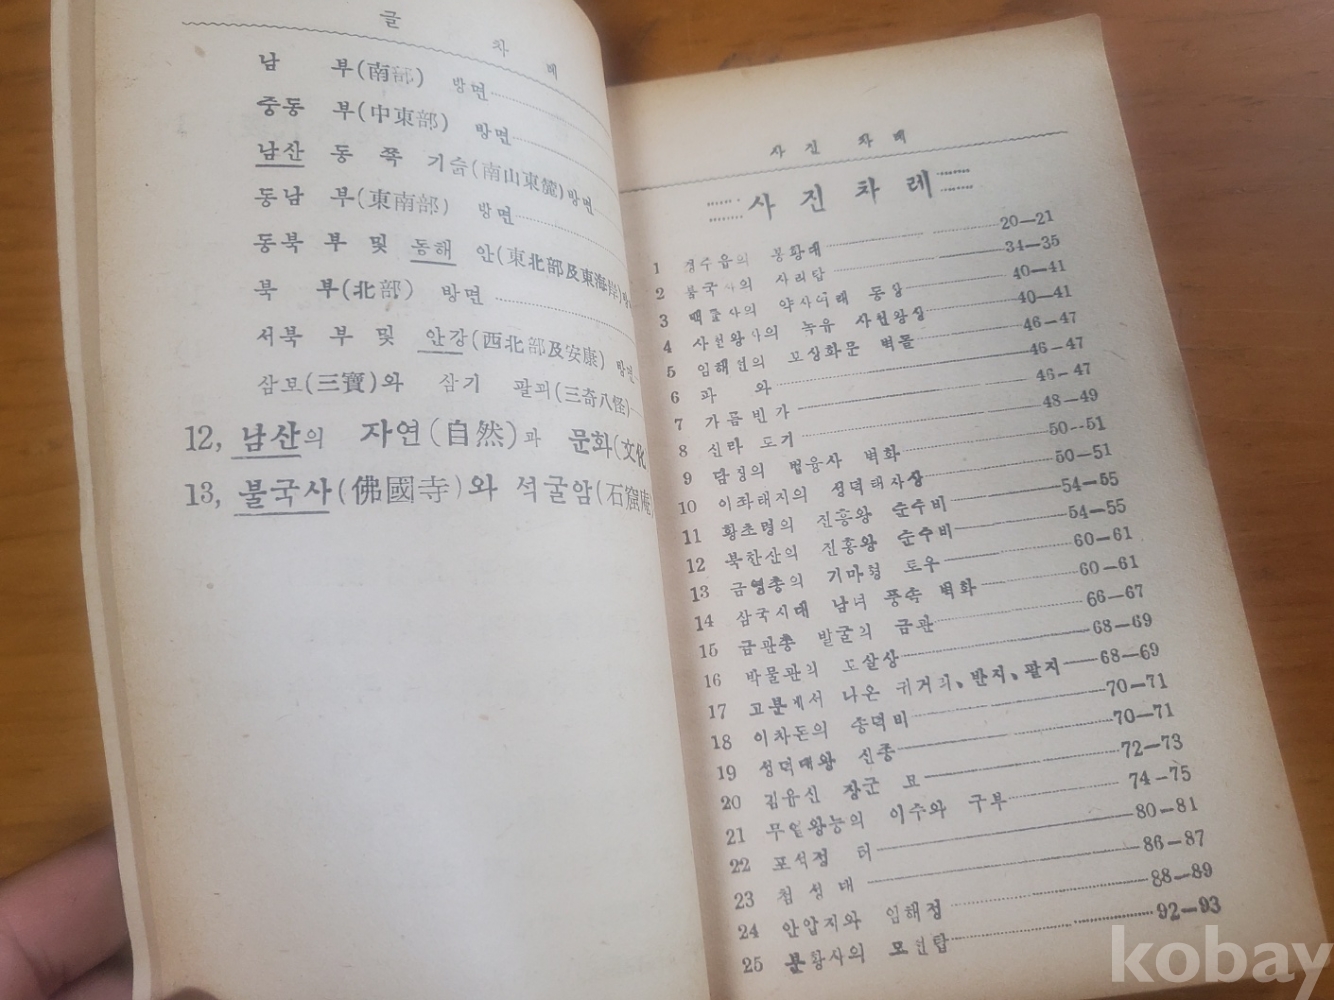 글 차 례
남 부(南部) 방면
중동 부(中東部) 방면
남산 동 쪽 기슭(南山東麓)방면
동남 부(東南部) 방면
동북 부 및 동해 안(東北部及東海岸)방
북 부(北部) 방면
서북 부 및 안강(西北部及安康) 방면
삼보(三寶)와 삼기 팔괴(三奇八怪)
12, 남산의 자연(自然)과 문화(文化
13, 불국사(佛國寺)와 석굴암(石窟庵)
사 진 차 례
사 진 차 례
1 경주읍의 봉황대 20—21
2 불국사의 사리탑 34—35
3 백률사의 약사여래 동상 40—41
4 사천왕사의 녹유 사천왕상 40—41
5 임해전의 보상화문 벽돌 46—47
6 과 와 46—47
7 가릉빈가 46—47
8 신라 도기 48—49
9 담징의 법융사 벽화 50—51
10 이좌태지의 성덕태자상 50—51
11 황초령의 진흥왕 순수비 54—55
12 북한산의 진흥왕 순수비 54—55
13 금령총의 기마형 토우 60—61
14 삼국시대 남녀 풍속 벽화 60—61
15 금관총 발굴의 금관 66—67
16 박물관의 보살상 68—69
17 고분에서 나온 귀거리、반지、팔지 68—69
18 이차돈의 송덕비 70—71
19 성덕대왕 신종 70—71
20 김유신 장군 묘 72—73
21 무열왕능의 이수와 구부 74—75
22 포석정 터 80—81
23 첨성대 86—87
24 안압지와 임해정 88—89
25 분황사의 모전탑 92—93
kobay